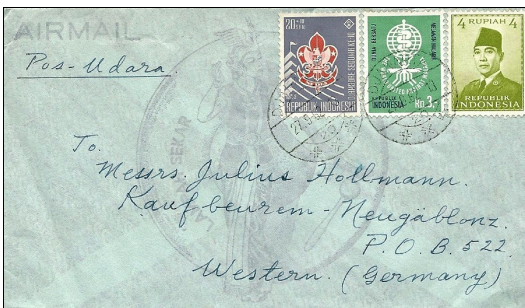 AIRMAIL
Pos-Udara.
20+10 SEN
REPUBLIK INDONESIA
DUNIA BERSATU
REPUBLIK INDONESIA
Rp. 3,-
4 RUPIAH 4
REPUBLIK
INDONESIA
SEKAR
To.
Messrs. Julius Hollmann.
Kaufbeurem-Neugäblonz.
P.O.B. 522.
Western. (Germany)